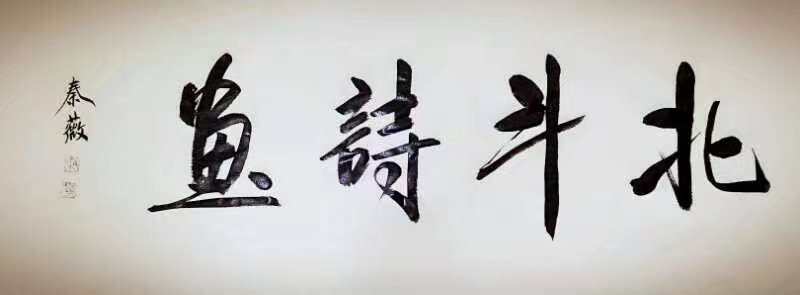 北斗詩畫
秦薇